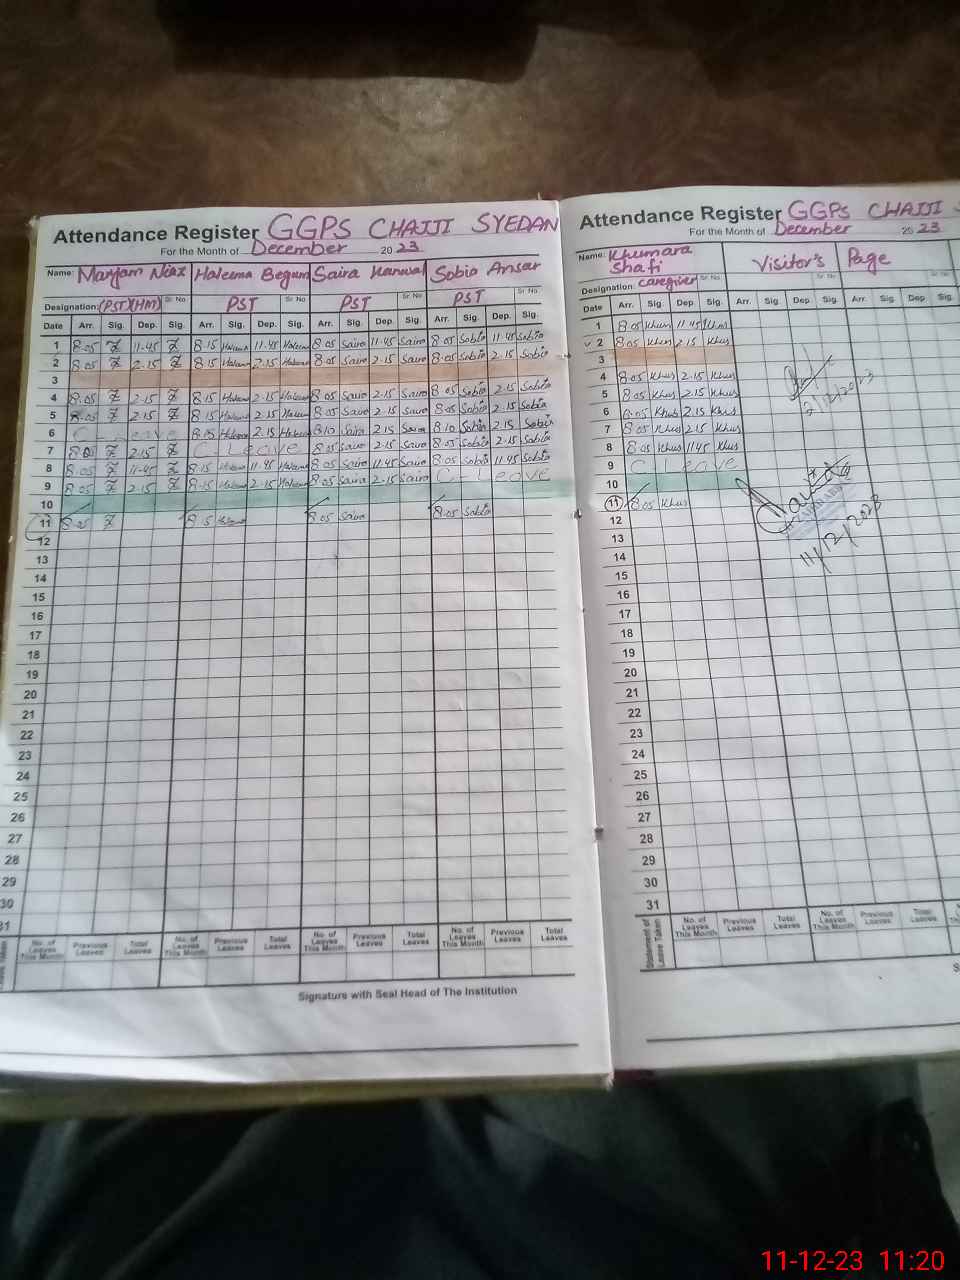 Attendance Register GGPS CHAJJI SYEDAN
For the Month of December 2023
Name: Maryam Niaz Haleema Begum Saira Kanwal Sobia Ansar
Designation: (PST)(HM) Sr. No PST Sr. No PST Sr. No PST Sr. No
Date Arr. Sig. Dep. Sig. Arr. Sig. Dep. Sig. Arr. Sig. Dep. Sig. Arr. Sig. Dep. Sig.
1 8.05 11.45 8.15 Haleema 11.45 Haleema 8.05 Saira 11.45 Saira 8.05 Sobia 11.45 Sobia
2 8.05 2.15 8.15 Haleema 2.15 Haleema 8.05 Saira 2.15 Saira 8.05 Sobia 2.15 Sobia
3
4 8.05 2.15 8.15 Haleema 2.15 Haleema 8.05 Saira 2.15 Saira 8.05 Sobia 2.15 Sobia
5 8.05 2.15 8.15 Haleema 2.15 Haleema 8.05 Saira 2.15 Saira 8.05 Sobia 2.15 Sobia
6 C-Leave 8.15 Haleema 2.15 Haleema 8.10 Saira 2.15 Saira 8.10 Sobia 2.15 Sobia
7 2.15 C Leave 8.05 Saira 2.15 Saira 8.05 Sobia 2.15 Sobia
8 8.05 11.45 8.15 Haleema 11.45 Haleema 8.05 Saira 11.45 Saira 8.05 Sobia 11.45 Sobia
9 8.05 2.15 8.15 Haleema 2.15 Haleema 8.05 Saira 2.15 Saira C-Leave
10
11 8.05 Saira 8.05 Sobia
12
13
14
15
16
17
18
19
20
21
22
23
24
25
26
27
28
29
30
31
Leave Taken No. of Leaves This Month Previous Leaves Total Leaves No. of Leaves This Month Previous Leaves Total Leaves No. of Leaves This Month Previous Leaves Total Leaves No. of Leaves This Month Previous Leaves Total Leaves
Signature with Seal Head of The Institution
Attendance Register GGPS CHAJJI
For the Month of December 2023
Name: Khumara Shafi Visitor's Page
Designation: caregiver Sr. No Sr. No
Date Arr. Sig. Dep. Sig. Arr. Sig. Dep. Sig. Arr. Sig. Dep.
1 8.05 Khus 11.45 Khus
2 8.05 Khus 2.15 Khus
3
4 8.05 Khus 2.15 Khus
5 8.05 Khus 2.15 Khus
6 8.05 Khus 2.15 Khus
7 8.05 Khus 2.15 Khus
8 8.05 Khus 11.45 Khus
9 C Leave
10
11 8.05 Khus
12
13
14
15
16
17
18
19
20
21
22
23
24
25
26
27
28
29
30
31
/12/2023
11/12/2023
Statement of Leave Taken No. of Leaves This Month Previous Leaves Total Leaves No. of Leaves This Month Previous Leaves Total Leaves
11-12-23 11:20